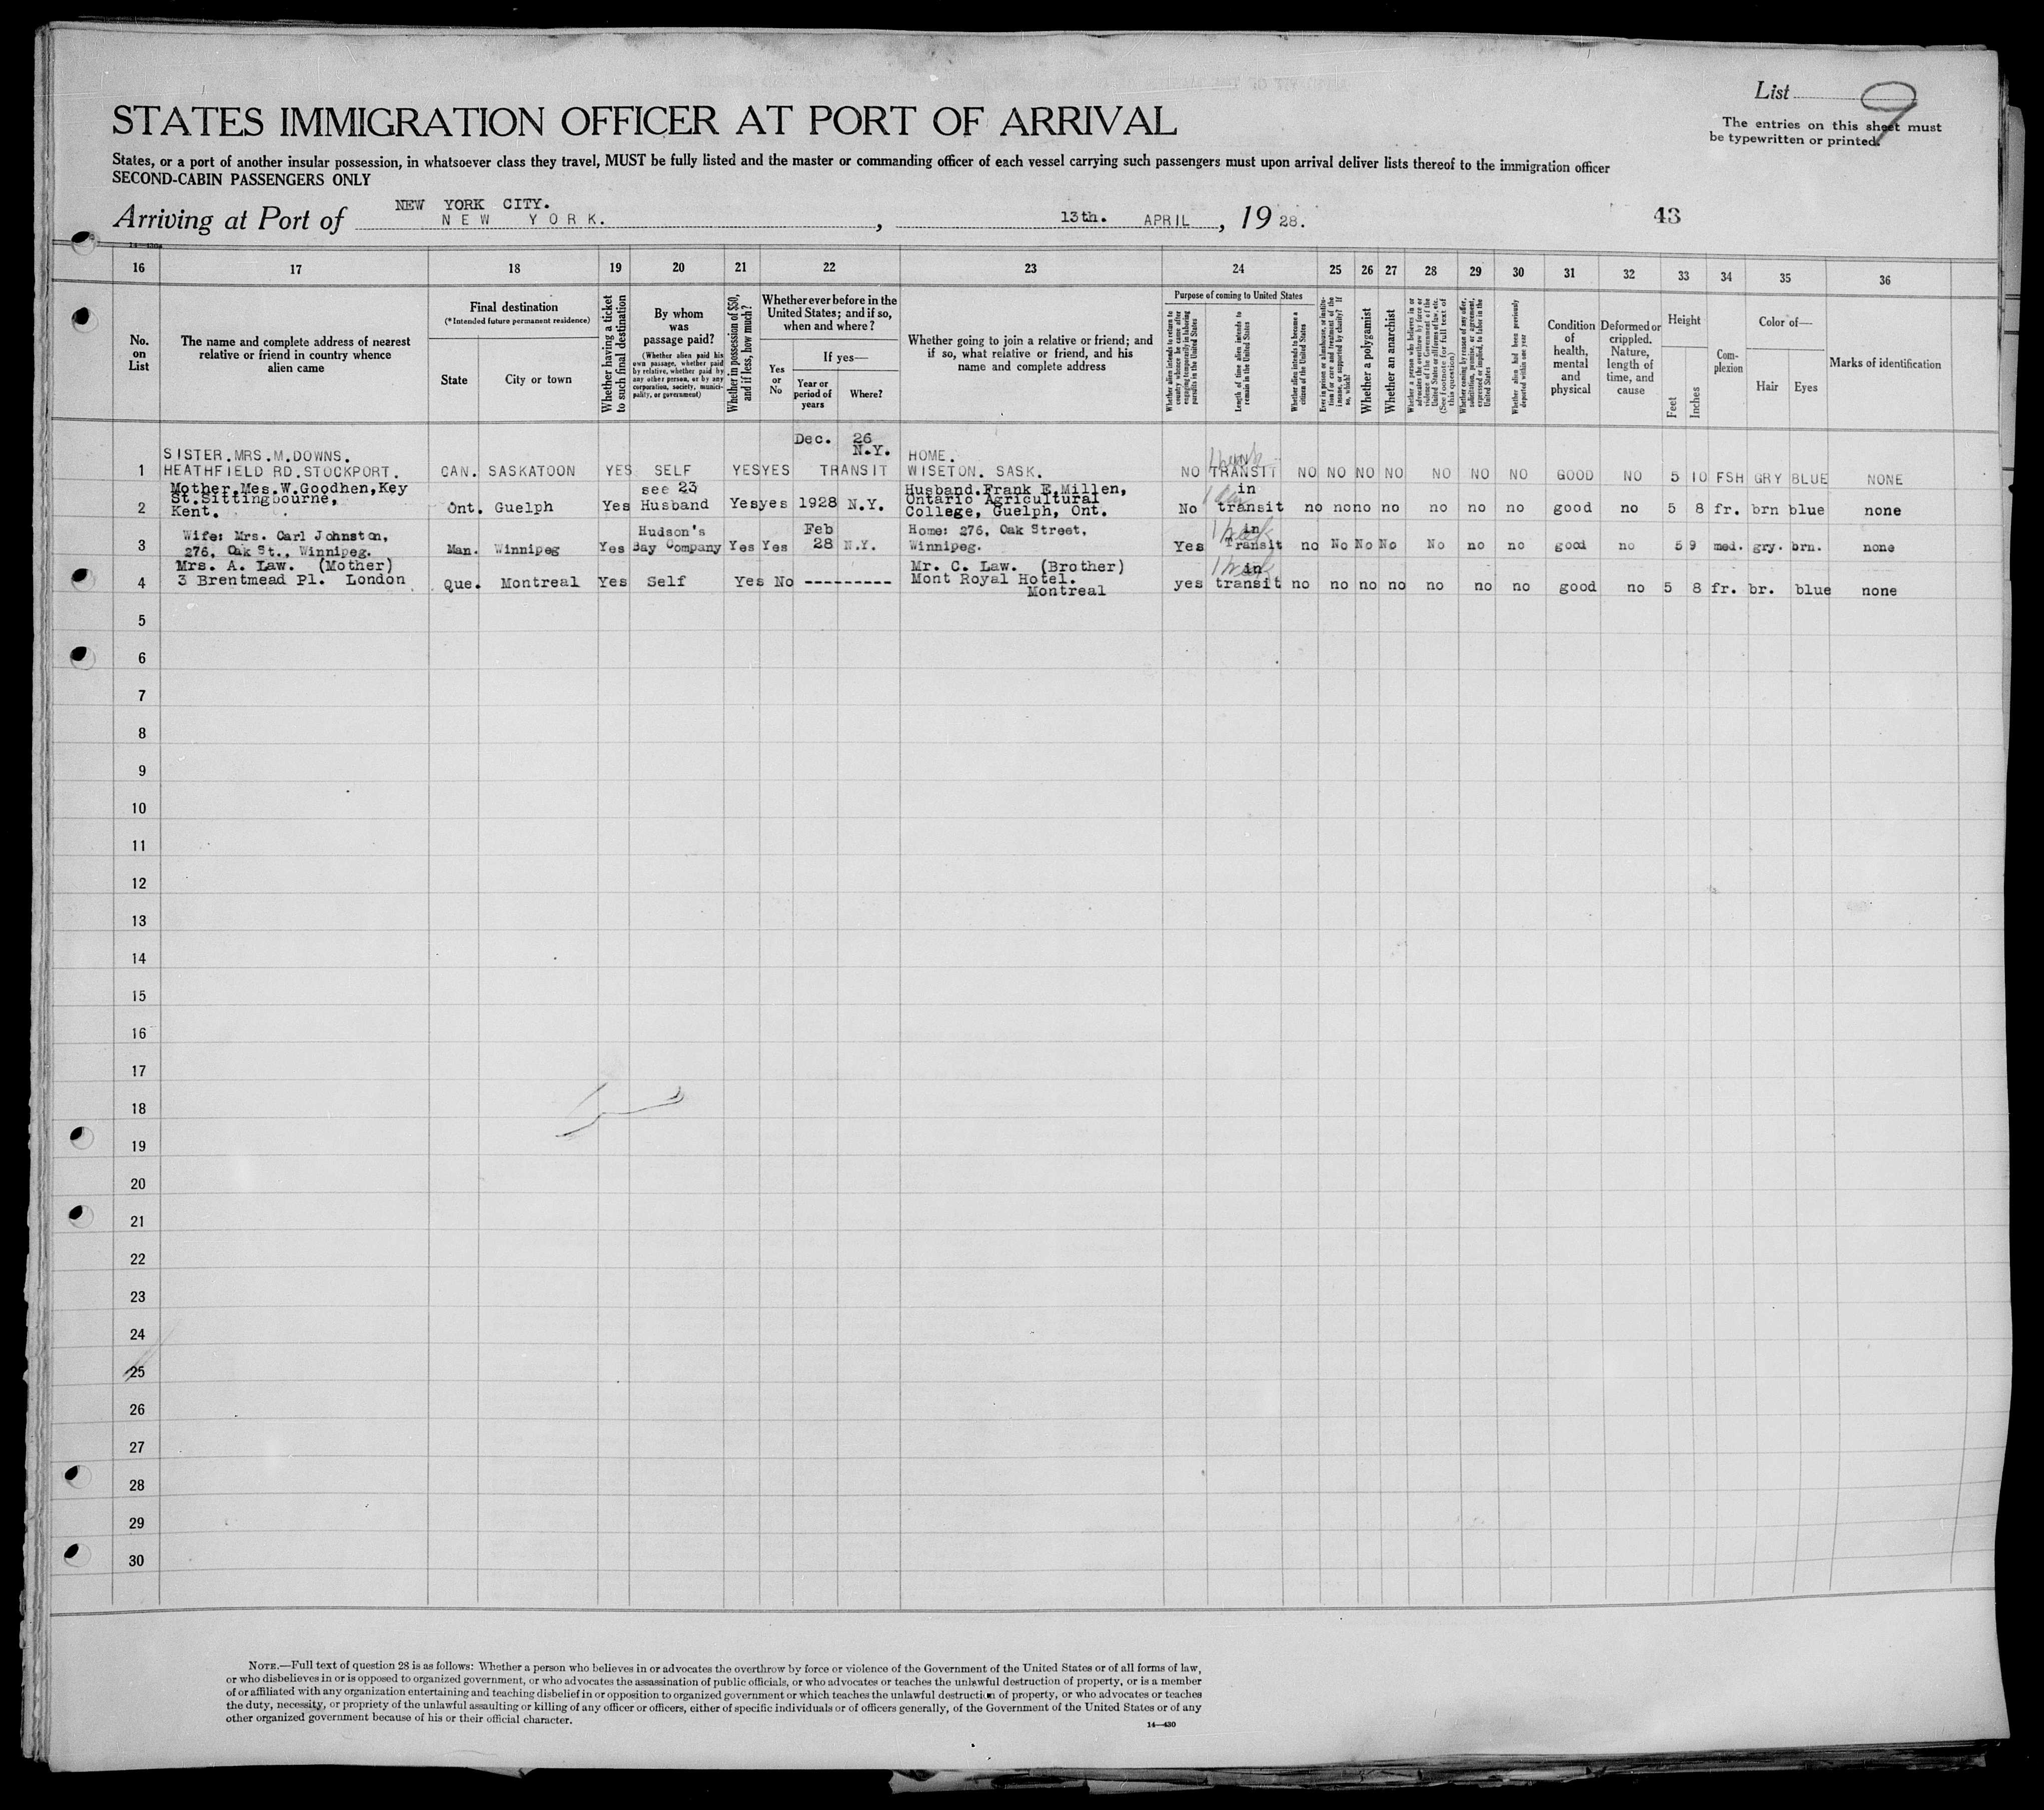 List 9
The entries on this sheet must
be typewritten or printed.
STATES IMMIGRATION OFFICER AT PORT OF ARRIVAL
States, or a port of another insular possession, in whatsoever class they travel, MUST be fully listed and the master or commanding officer of each vessel carrying such passengers must upon arrival deliver lists thereof to the immigration officer
SECOND-CABIN PASSENGERS ONLY
NEW YORK CITY.
Arriving at Port of NEW YORK. , 13th. APRIL , 19 28.
43
14—430a
16 17 18 19 20 21 22 23 24 25 26 27 28 29 30 31 32 33 34 35 36
No. on List
The name and complete address of nearest relative or friend in country whence alien came
Final destination
(*Intended future permanent residence)
State
City or town
Whether having a ticket to such final destination
By whom was passage paid?
(Whether alien paid his own passage, whether paid by relative, whether paid by any other person, or by any corporation, society, municipality, or government)
Whether in possession of $50, and if less, how much?
Whether ever before in the United States; and if so, when and where?
Yes or No
If yes—
Year or period of years
Where?
Whether going to join a relative or friend; and if so, what relative or friend, and his name and complete address
Purpose of coming to United States
Whether alien intends to return to country whence he came after engaging temporarily in laboring pursuits in the United States
Length of time alien intends to remain in the United States
Whether alien intends to become a citizen of the United States
Ever in prison or almshouse, or institution for care and treatment of the insane, or supported by charity? If so, which?
Whether a polygamist
Whether an anarchist
Whether a person who believes in or advocates the overthrow by force or violence of the Government of the United States or all forms of law, etc. (See footnote for full text of this question)
Whether coming by reason of any offer, solicitation, promise, or agreement, expressed or implied, to labor in the United States
Whether alien had been previously deported within one year
Condition of health, mental and physical
Deformed or crippled. Nature, length of time, and cause
Height
Feet
Inches
Complexion
Color of—
Hair
Eyes
Marks of identification
Dec. 26
SISTER.MRS.M.DOWNS. N.Y. HOME. 1 week
1 HEATHFIELD RD.STOCKPORT. CAN. SASKATOON YES SELF YES YES TRANSIT WISETON. SASK. NO TRANSIT NO NO NO NO NO NO NO GOOD NO 5 10 FSH GRY BLUE NONE
Mother,Mes.W.Goodhen,Key see 23 Husband.Frank E.Millen, in
St.Sittingbourne, Ontario Agricultural
2 Kent. Ont. Guelph Yes Husband Yes yes 1928 N.Y. College, Guelph, Ont. No transit no no no no no no no good no 5 8 fr. brn blue none
Wife: Mrs. Carl Johnston, Hudson's Feb Home: 276, Oak Street, 1 week in
3 276, Oak St., Winnipeg. Man. Winnipeg Yes Bay Company Yes Yes 28 N.Y. Winnipeg. Yes Transit no No No No No no no good no 5 9 med. gry. brn. none
Mrs. A. Law. (Mother) Mr. C. Law. (Brother) 1 week in
4 3 Brentmead Pl. London Que. Montreal Yes Self Yes No --------- Mont Royal Hotel. yes transit no no no no no no no good no 5 8 fr. br. blue none
Montreal
5
6
7
8
9
10
11
12
13
14
15
16
17
18
19
20
21
22
23
24
25
26
27
28
29
30
NOTE.—Full text of question 28 is as follows: Whether a person who believes in or advocates the overthrow by force or violence of the Government of the United States or of all forms of law,
or who disbelieves in or is opposed to organized government, or who advocates the assassination of public officials, or who advocates or teaches the unlawful destruction of property, or is a member
of or affiliated with any organization entertaining and teaching disbelief in or opposition to organized government or which teaches the unlawful destruction of property, or who advocates or teaches
the duty, necessity, or propriety of the unlawful assaulting or killing of any officer or officers, either of specific individuals or of officers generally, of the Government of the United States or of any
other organized government because of his or their official character.
14—430